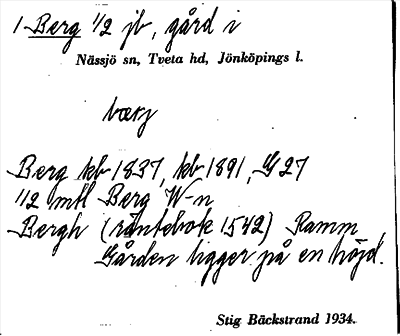 1 Berg 1/2 jb, gård i
Nässjö sn, Tveta hd, Jönköpings l.
bærj
Berg kb 1837, kb 1891, G 27
1/2 mtl Berg W-n
Bergh (räntebok 1542) Ramm
Gården ligger på en höjd.
Stig Bäckstrand 1934.